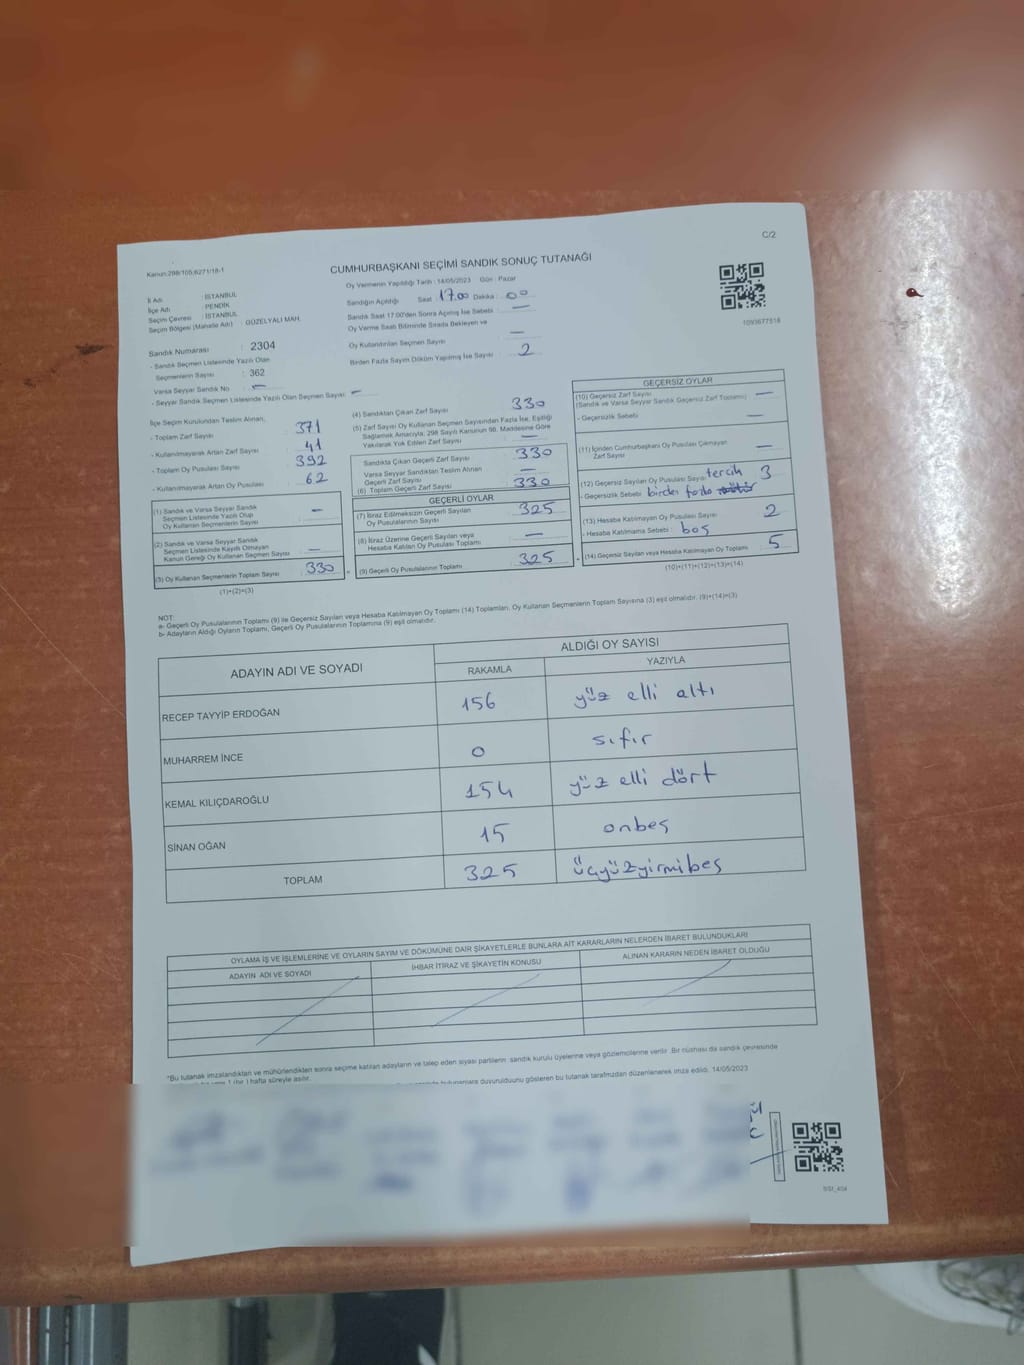 C/2
Kanun:298/105,6271/18-1
CUMHURBAŞKANI SEÇİMİ SANDIK SONUÇ TUTANAĞI
Oy Vermenin Yapıldığı Tarih : 14/05/2023 Gün : Pazar
İl Adı : İSTANBUL
İlçe Adı : PENDİK
Seçim Çevresi : İSTANBUL
Seçim Bölgesi (Mahalle Adı) : GÜZELYALI MAH.
Sandığın Açıldığı Saat : 17.00 Dakika : 00
Sandık Saat 17.00'den Sonra Açılmış İse Sebebi : —
Oy Verme Saati Bitiminde Sırada Bekleyen ve
Oy Kullandırılan Seçmen Sayısı : —
Birden Fazla Sayım Döküm Yapılmış İse Sayısı : 2
1093677518
Sandık Numarası : 2304
- Sandık Seçmen Listesinde Yazılı Olan
Seçmenlerin Sayısı : 362
- Varsa Seyyar Sandık No : —
- Seyyar Sandık Seçmen Listesinde Yazılı Olan Seçmen Sayısı: —
İlçe Seçim Kurulundan Teslim Alınan;
- Toplam Zarf Sayısı : 371
- Kullanılmayarak Artan Zarf Sayısı : 41
- Toplam Oy Pusulası Sayısı : 392
- Kullanılmayarak Artan Oy Pusulası : 62
(1) Sandık ve Varsa Seyyar Sandık
Seçmen Listesinde Yazılı Olup
Oy Kullanan Seçmenlerin Sayısı : —
(2) Sandık ve Varsa Seyyar Sandık
Seçmen Listesinde Kayıtlı Olmayan
Kanun Gereği Oy Kullanan Seçmen Sayısı : —
(3) Oy Kullanan Seçmenlerin Toplam Sayısı : 330
(1)+(2)=(3)
(4) Sandıktan Çıkan Zarf Sayısı : 330
(5) Zarf Sayısı Oy Kullanan Seçmen Sayısından Fazla İse, Eşitliği
Sağlamak Amacıyla; 298 Sayılı Kanunun 98. Maddesine Göre
Yakılarak Yok Edilen Zarf Sayısı : —
Sandıkta Çıkan Geçerli Zarf Sayısı : 330
Varsa Seyyar Sandıktan Teslim Alınan
Geçerli Zarf Sayısı : —
(6) Toplam Geçerli Zarf Sayısı : 330
GEÇERLİ OYLAR
(7) İtiraz Edilmeksizin Geçerli Sayılan
Oy Pusulalarının Sayısı : 325
(8) İtiraz Üzerine Geçerli Sayılan veya
Hesaba Katılan Oy Pusulası Toplamı : —
(9) Geçerli Oy Pusulalarının Toplamı : 325
GEÇERSİZ OYLAR
(10) Geçersiz Zarf Sayısı : —
(Sandık ve Varsa Seyyar Sandık Geçersiz Zarf Toplamı)
- Geçersizlik Sebebi : —
(11) İçinden Cumhurbaşkanı Oy Pusulası Çıkmayan
Zarf Sayısı : —
(12) Geçersiz Sayılan Oy Pusulası Sayısı : 3
- Geçersizlik Sebebi : birden fazla tercih
(13) Hesaba Katılmayan Oy Pusulası Sayısı : 2
- Hesaba Katılmama Sebebi : boş
(14) Geçersiz Sayılan veya Hesaba Katılmayan Oy Toplamı : 5
(10)+(11)+(12)+(13)=(14)
NOT:
a- Geçerli Oy Pusulalarının Toplamı (9) ile Geçersiz Sayılan veya Hesaba Katılmayan Oy Toplamı (14) Toplamları, Oy Kullanan Seçmenlerin Toplam Sayısına (3) eşit olmalıdır. (9)+(14)=(3)
b- Adayların Aldığı Oyların Toplamı, Geçerli Oy Pusulalarının Toplamına (9) eşit olmalıdır.
ADAYIN ADI VE SOYADI ALDIĞI OY SAYISI
RAKAMLA YAZIYLA
RECEP TAYYİP ERDOĞAN 156 yüz elli altı
MUHARREM İNCE 0 sıfır
KEMAL KILIÇDAROĞLU 154 yüz elli dört
SİNAN OĞAN 15 onbeş
TOPLAM 325 üçyüzyirmibeş
OYLAMA İŞ VE İŞLEMLERİNE VE OYLARIN SAYIM VE DÖKÜMÜNE DAİR ŞİKAYETLERLE BUNLARA AİT KARARLARIN NELERDEN İBARET BULUNDUKLARI
ADAYIN ADI VE SOYADI İHBAR İTİRAZ VE ŞİKAYETİN KONUSU ALINAN KARARIN NEDEN İBARET OLDUĞU
*Bu tutanak imzalandıktan ve mühürlendikten sonra seçime katılan adayların ve talep eden siyasi partilerin sandık kurulu üyelerine veya gözlemcilerine verilir. Bir nüshası da sandık çevresinde
1 (bir ) hafta süreyle asılır.
duyurulduunu gösteren bu tutanak tarafımızdan düzenlenerek imza edildi. 14/05/2023